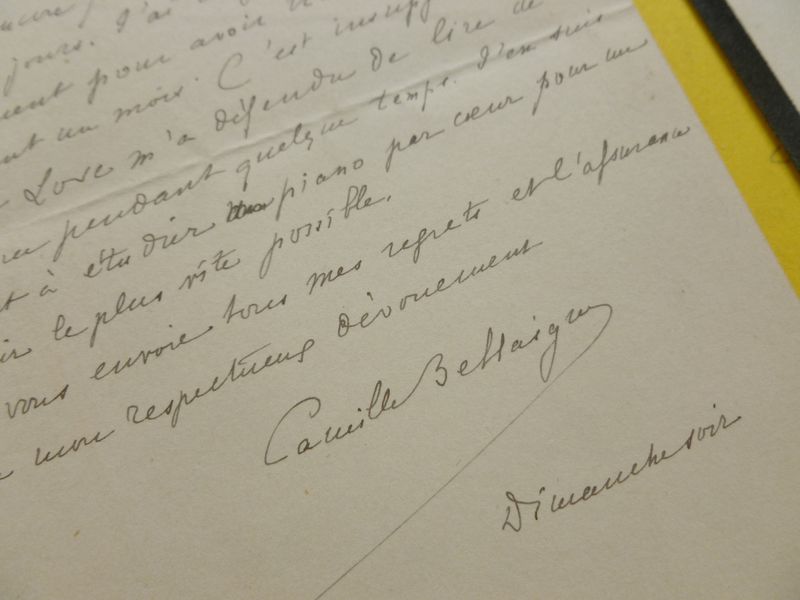 jours. J'ai
pour avoir
un mois. C'est
Love m'a défendu de lire de
pendant quelque temps. J'en suis
à étudier piano par cœur pour un
le plus vite possible.
vous envoie tous mes regrets et l'assurance
mon respectueux dévouement
Camille Bellaigue
Dimanche soir